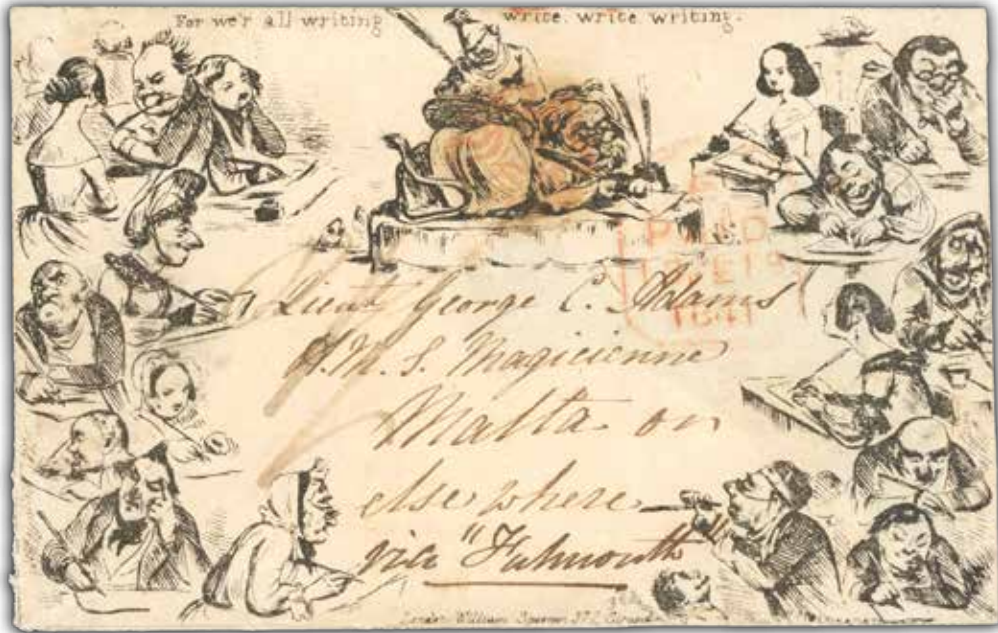 For we'r all writing write. write. writing.
PAID
1841
Lieut George C. Adams
H.M.S. Magicienne
Malta or
elsewhere
via "Falmouth"
London William Spooner 377 Strand